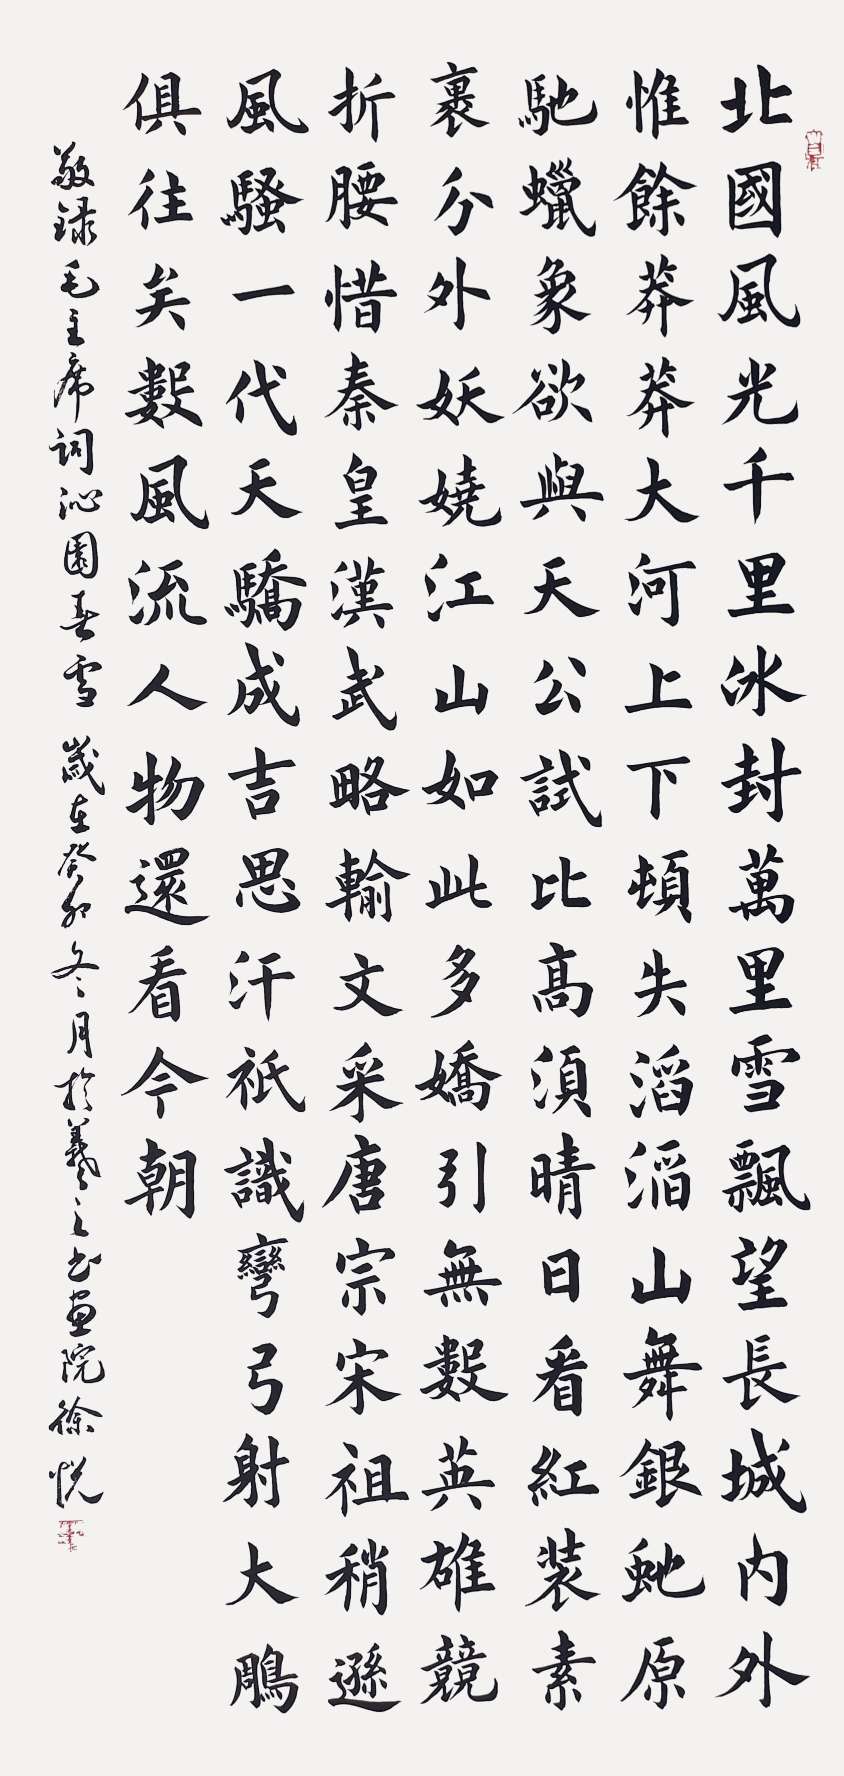 北國風光千里冰封萬里雪飄望長城内外
惟餘莽莽大河上下頓失滔滔山舞銀虵原
馳蠟象欲與天公試比髙須晴日看紅装素
裹分外妖嬈江山如此多嬌引無數英雄競
折腰惜秦皇漢武略輸文采唐宗宋祖稍遜
風騷一代天驕成吉思汗祇識彎弓射大鵰
俱往矣數風流人物還看今朝
敬録毛主席詞沁園春雪 歲在癸卯冬月於羲之书画院徐悦